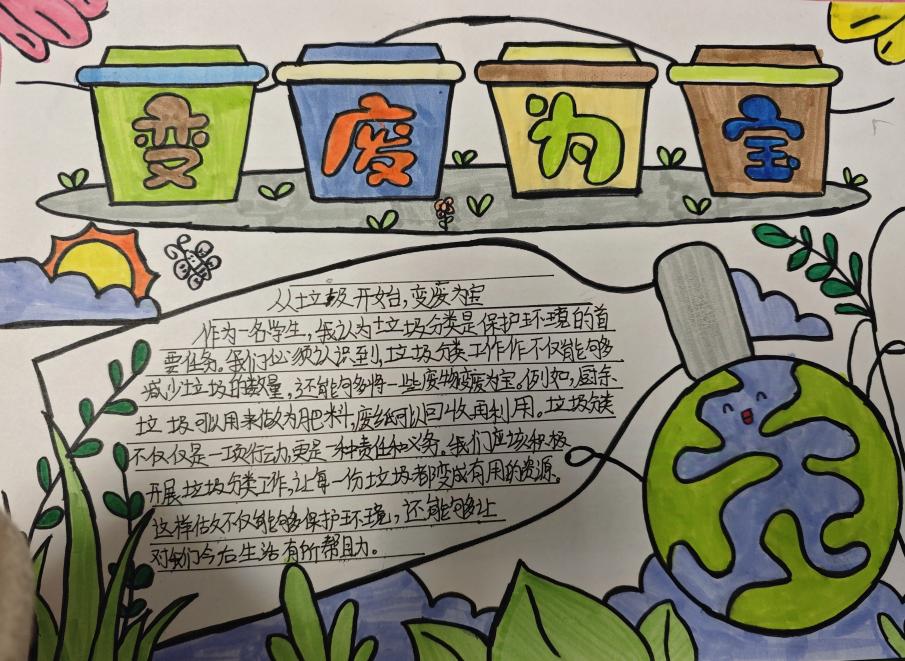 变废为宝
从垃圾开始,变废为宝
作为一名学生,我认为垃圾分类是保护环境的首
要任务。我们必须认识到,垃圾分类工作作不仅能够
减少垃圾的数量,还能够将一些废物变废为宝。例如,厨余
垃圾可以用来做为肥料,废纸可以回收再利用。垃圾分类
不仅仅是一项行动,更是一种责任和义务。我们应该积极
开展垃圾分类工作,让每一份垃圾都变成有用的资源。
这样做不仅能够保护环境,还能够让
对我们今后生活有所帮助。